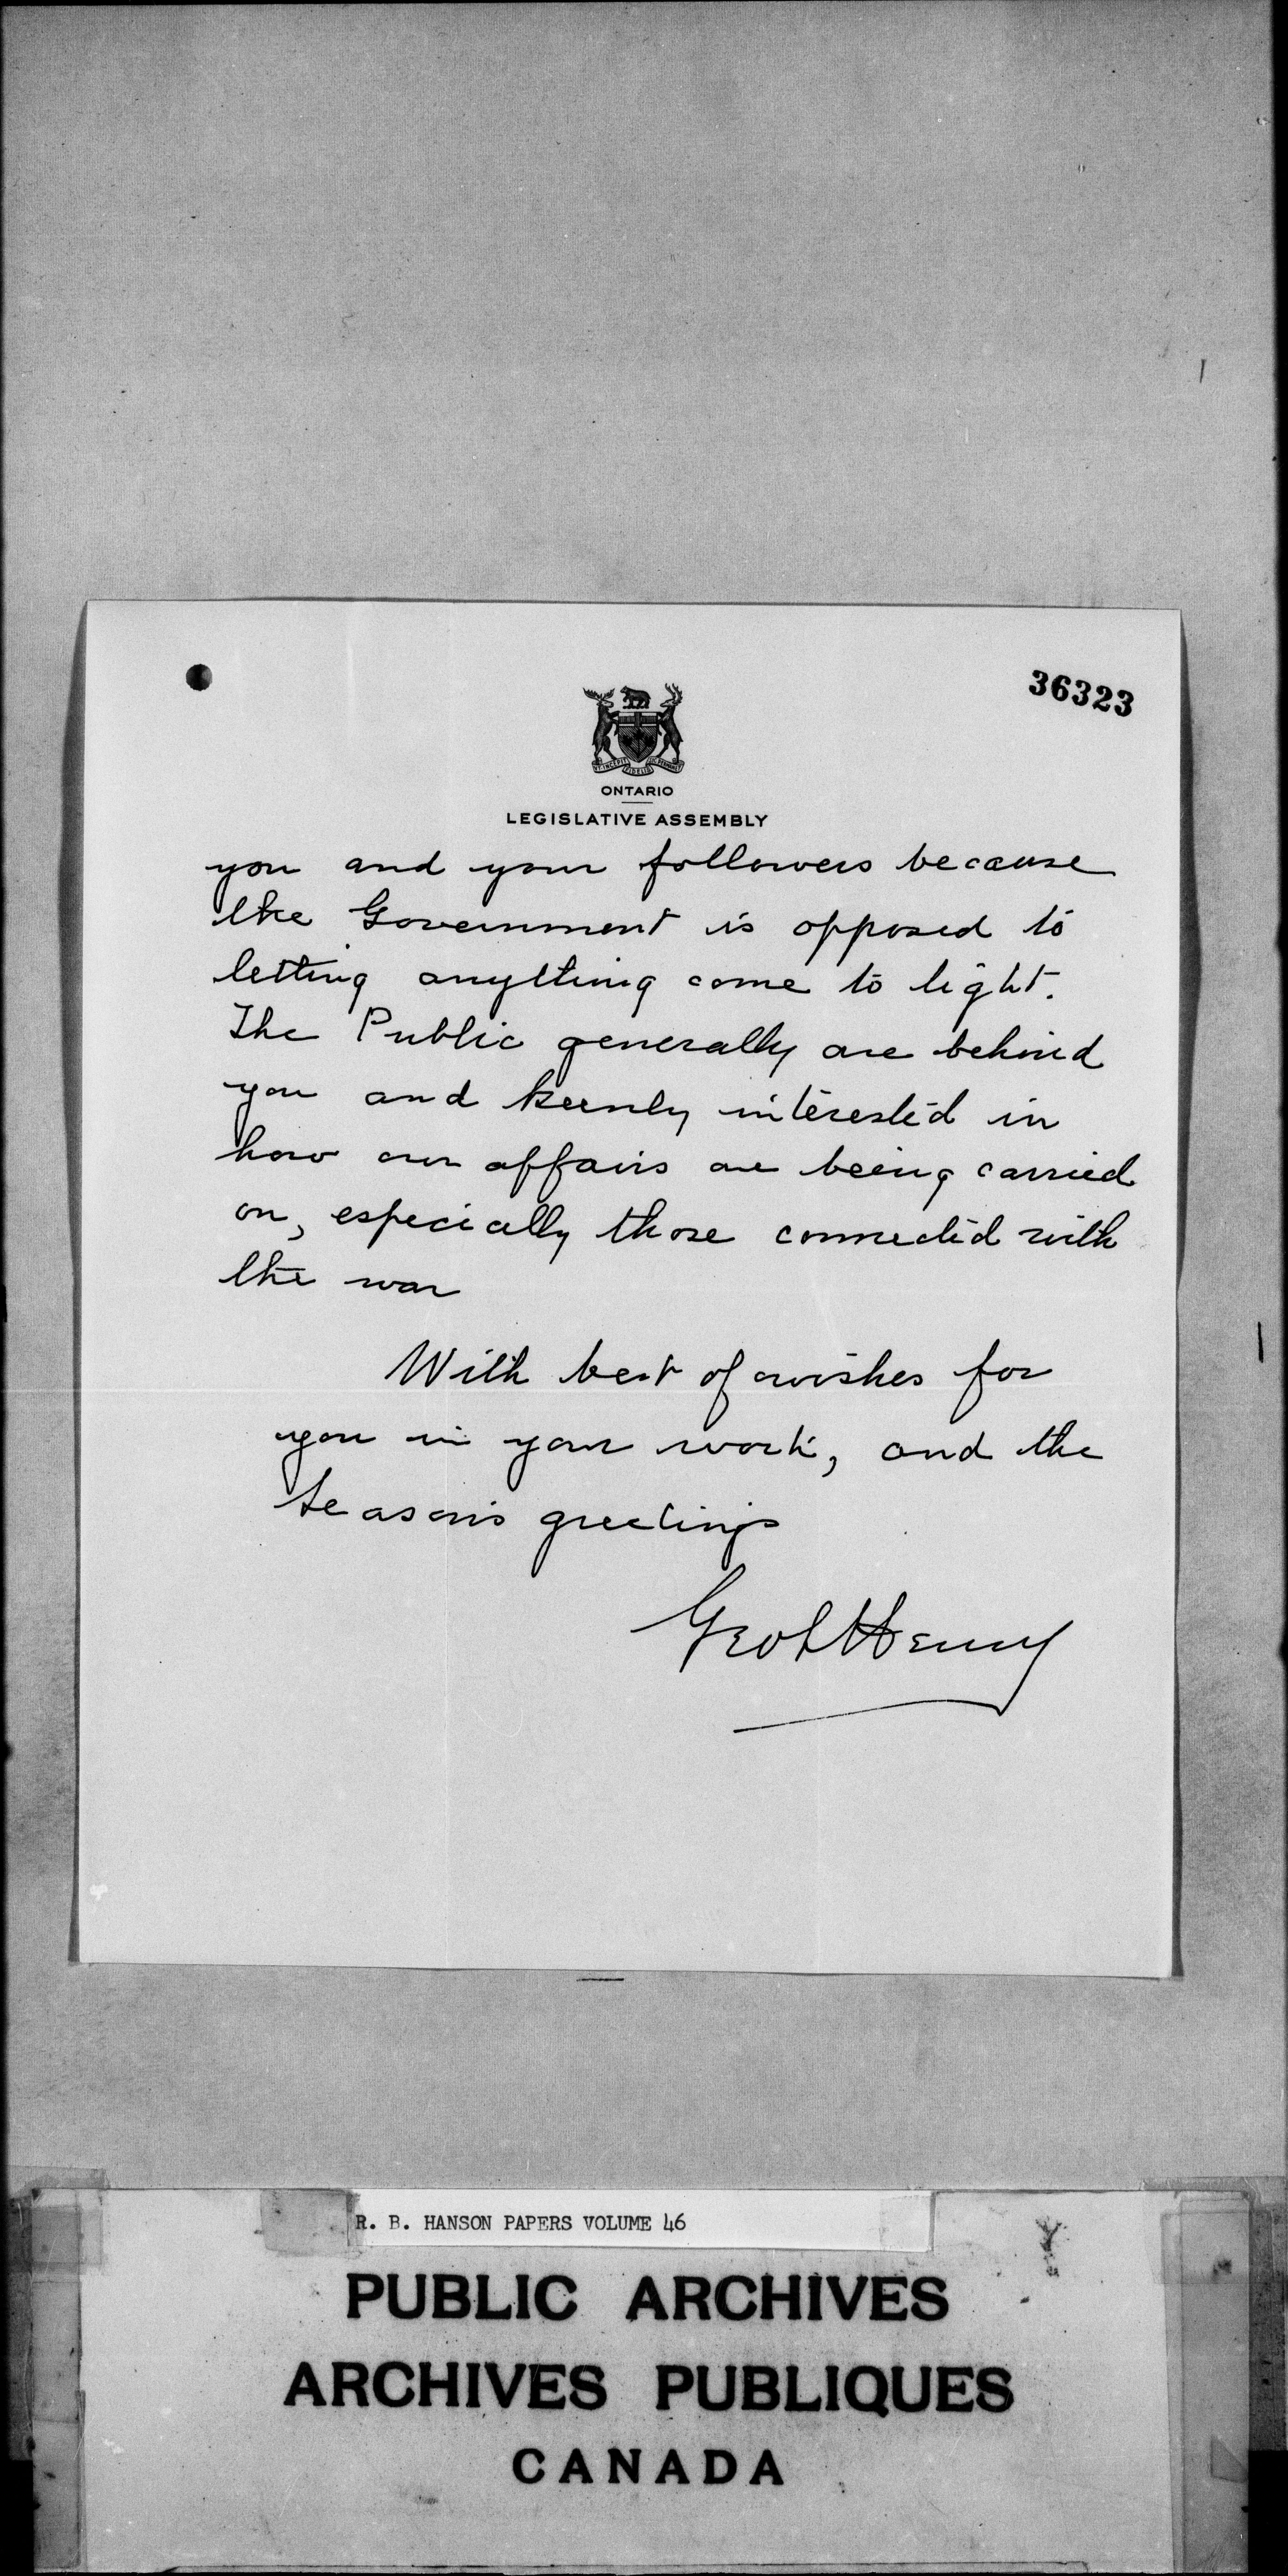 36323
UT INCEPIT FIDELIS SIC PERMANET
ONTARIO
LEGISLATIVE ASSEMBLY
you and your followers because
the Government is opposed to
letting anything come to light.
The Public generally are behind
you and keenly interested in
how our affairs are being carried
on, especially those connected with
the war
With best of wishes for
you in your work, and the
Season's greetings
Geo S Henry
R. B. HANSON PAPERS VOLUME 46
PUBLIC ARCHIVES
ARCHIVES PUBLIQUES
CANADA